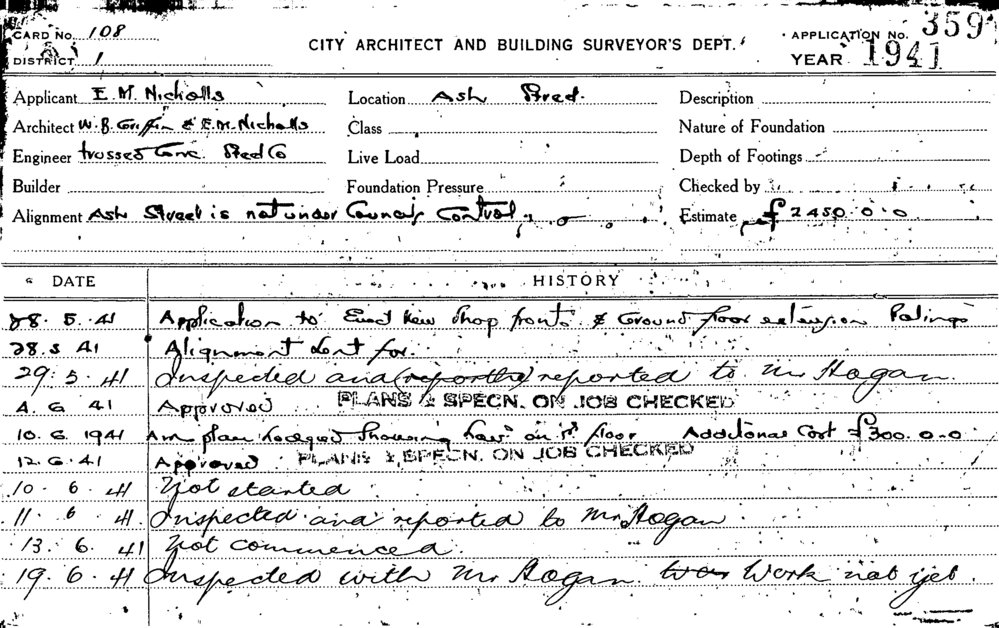 CARD No. 108
DISTRICT 1
CITY ARCHITECT AND BUILDING SURVEYOR'S DEPT.
APPLICATION No. 359
YEAR 1941
Applicant E. M. Nicholls Location Ash Street. Description
Architect W. B. Griffin & E. M. Nicholls Class Nature of Foundation
Engineer trussed Conc. Steel Co Live Load Depth of Footings
Builder Foundation Pressure Checked by
Alignment Ash Street is not under Councils Control. Estimate £2450.0.0
DATE HISTORY
28. 5. 41 Application to Erect New Shop fronts & Ground floor extension Palings
28. 5 41 Alignment sent for.
29. 5. 41 Inspected and (reporthe) reported to Mr Hogan.
4. 6 41 Approved PLANS & SPECN. ON JOB CHECKED
10. 6. 1941 Am plan lodged Showing on 1st floor Additional Cost £300.0.0
12. 6. 41 Approved PLANS & SPECN. ON JOB CHECKED
10. 6. 41 Not started
11. 6 41. Inspected and reported to Mr Hogan
13. 6. 41 Not commenced.
19. 6. 41 Inspected with Mr Hogan. Work not yet.